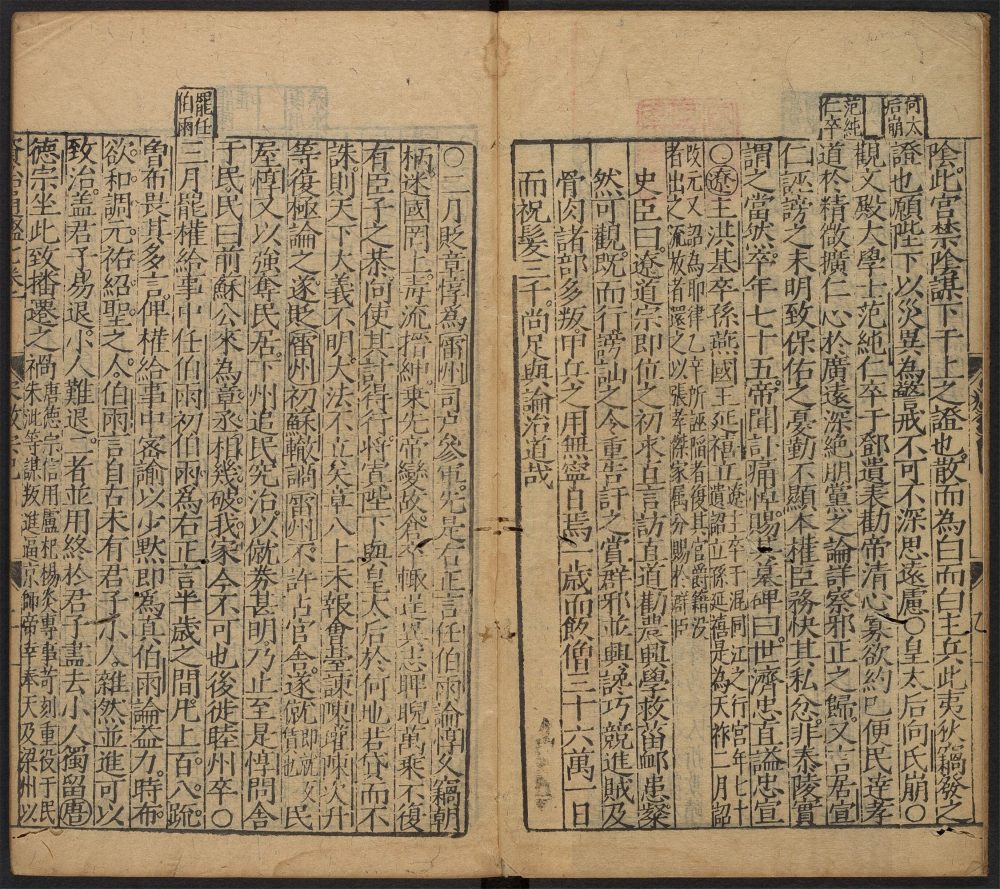 何太后崩
范純仁卒
陰此宮禁陰謀下干上之證也散而為白而白主兵此夷狄竊發之
證也願陛下以災異為警戒不可不深思遠慮○皇太后向氏崩○
觀文殿大學士范純仁卒于鄧遺表勸帝清心寡欲約己便民達孝
道於精微擴仁心於廣遠深絕朋黨之論詳察邪正之歸又言居宣
仁誣謗之未明致保佑之憂勤不顯本權臣務快其私忿非泰陵實
謂之當然卒年七十五帝聞訃痛悼賜墓碑曰世濟忠直謚忠宣
○遼主洪基卒孫燕國王延禧立遼主卒于混同江之行宮年七十遺詔立孫延禧是為天祚二月詔
改元又詔為耶律乙辛所誣陷者復其官爵籍沒
者出之流放者還之以張孝傑家屬分賜於群臣
史臣曰遼道宗即位之初求直言訪直道勸農興學救菑卹患粲
然可觀既而行謗訕之令重告訐之賞群邪並興讒巧競進賊及
骨肉諸部多叛甲兵之用無寧日焉一歲而飯僧三十六萬一日
而祝髮三千尚足與論治道哉
罷任伯雨
○二月貶章惇為雷州司戶參軍先是右正言任伯雨論惇久竊朝
柄迷國罔上毒流搢紳乘先帝變故倉卒輒逞異志睥睨萬乘不復
有臣子之恭向使其計得行將寘陛下與皇太后於何地若貸而不
誅則天下大義不明大法不立矣章八上未報會臺諫陳瓘陳次升
等復極論之遂貶雷州初蘇轍謫雷州不許占官舍遂僦即就也民
屋惇又以強奪民居下州追民究治以僦券甚明乃止至是惇問舍
于民民曰前蘇公來為章丞相幾破我家今不可也後徙睦州卒○
三月罷權給事中任伯雨初伯雨為右正言半歲之間凡上百八疏
曾布畏其多言俾權給事中密諭以少默即為真伯雨論益力時布
欲和調元祐紹聖之人伯雨言自古未有君子小人雜然並進可以
致治盖君子易退小人難退二者並用終於君子盡去小人獨留唐
德宗坐此致播遷之禍唐德宗信用盧杞楊炎專事苛刻重役于民朱泚等謀叛進逼京師帝幸奉天及梁州以